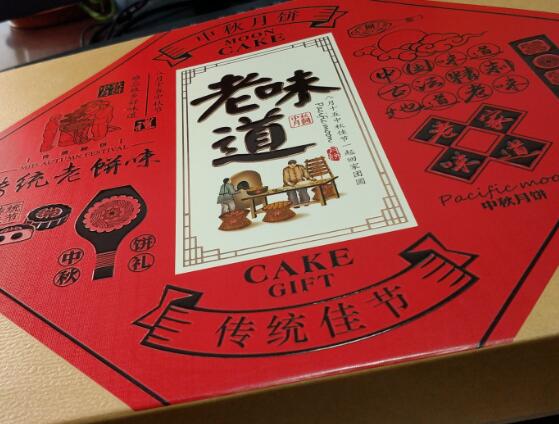 中秋月饼
MOON
CAKE
老味道
八月十五中秋佳节一起回家团圆
Pacific moon
CAKE
GIFT
传统佳节
八月十五中秋节
MID AUTUMN FESTIVAL
传统老饼味
中秋
饼礼
中国味道
古法精制
地道老味
老式
味道
Pacific moo
中秋月饼